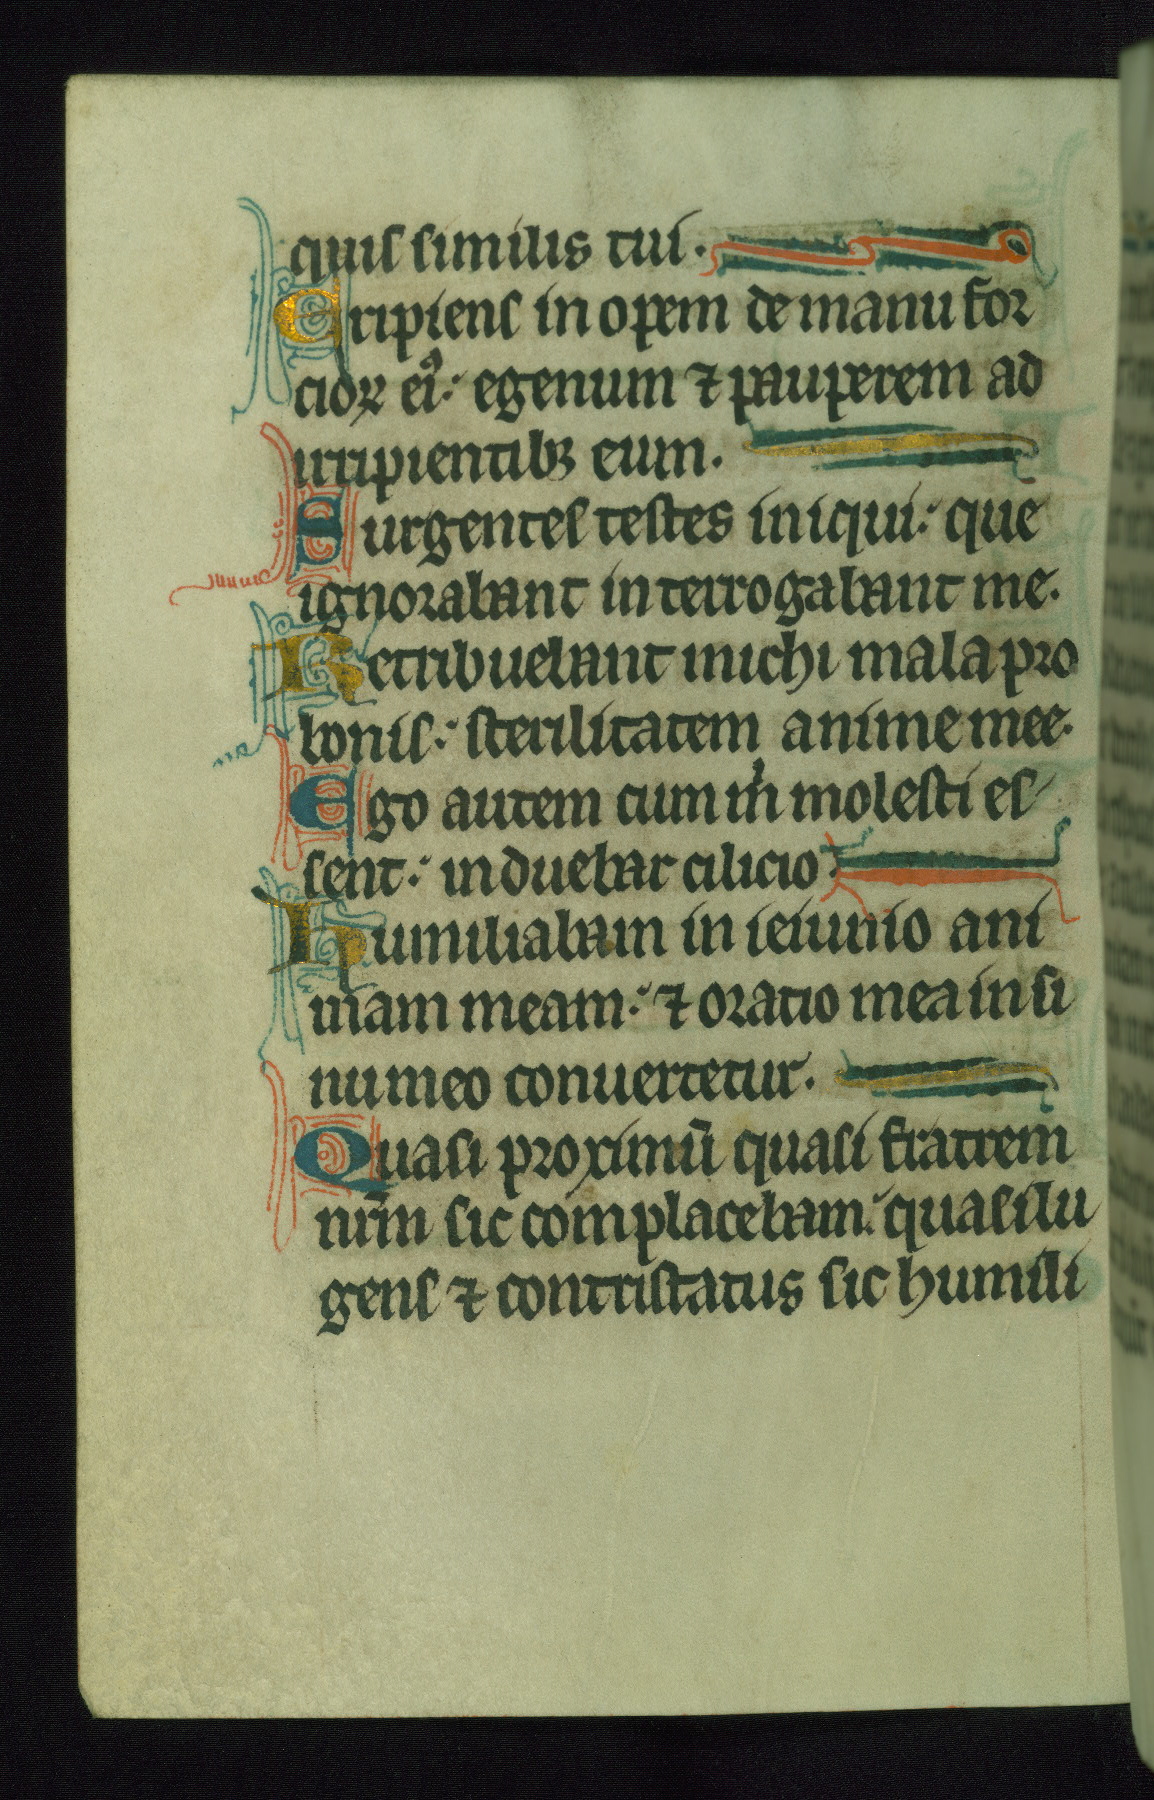 quis similis tui.
Eripiens inopem de manu for
cioꝝ eiꝰ: egenum ⁊ pauperem ad
irripientibꝫ eum.
Surgentes testes iniqui: que
ignorabant interrogabant me.
Retribuebant michi mala pro
bonis: sterilitatem anime mee.
Ego autem cum m̉ molesti es
sent: induebar cilicio.
Humiliabam in ieiunio ani
mam meam: ⁊ oratio mea in si
nu meo conuertetur.
Quasi proximū quasi fratrem
nr̄m sic complacebam: quasi lu
gens ⁊ contristatus sic humili